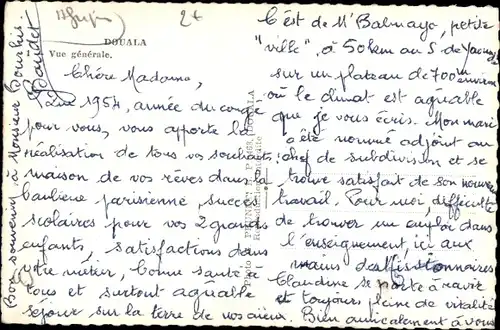 2€
DOUALA
1
Vue générale.
Chère Madame,
Que 1954, année du congé
pour vous, vous apporte la
réalisation de tous vos souhaits,
maison de vos rêves dans la
banlieue parisienne, succès
scolaires pour vos 2 grands
enfants, satisfactions dans
votre métier, bonne santé à
tous et surtout agréable
séjour sur la terre de nos aïeux.
C'est de M'Balmayo, petite
"ville", à 50 km au S de Yaoundé
sur un plateau de 700m environ
où le climat est agréable
que je vous écris. Mon mari
a été nommé adjoint au
chef de subdivision et se
trouve satisfait de son nouveau
travail. Pour moi, difficulté
de trouver un emploi dans
l'enseignement, ici aux
mains des missionnaires
Claudine se porte à ravir
et toujours pleine de vitalité
Bien amicalement à vous
Bon souvenir à Monsieur
Photo
DOUALA